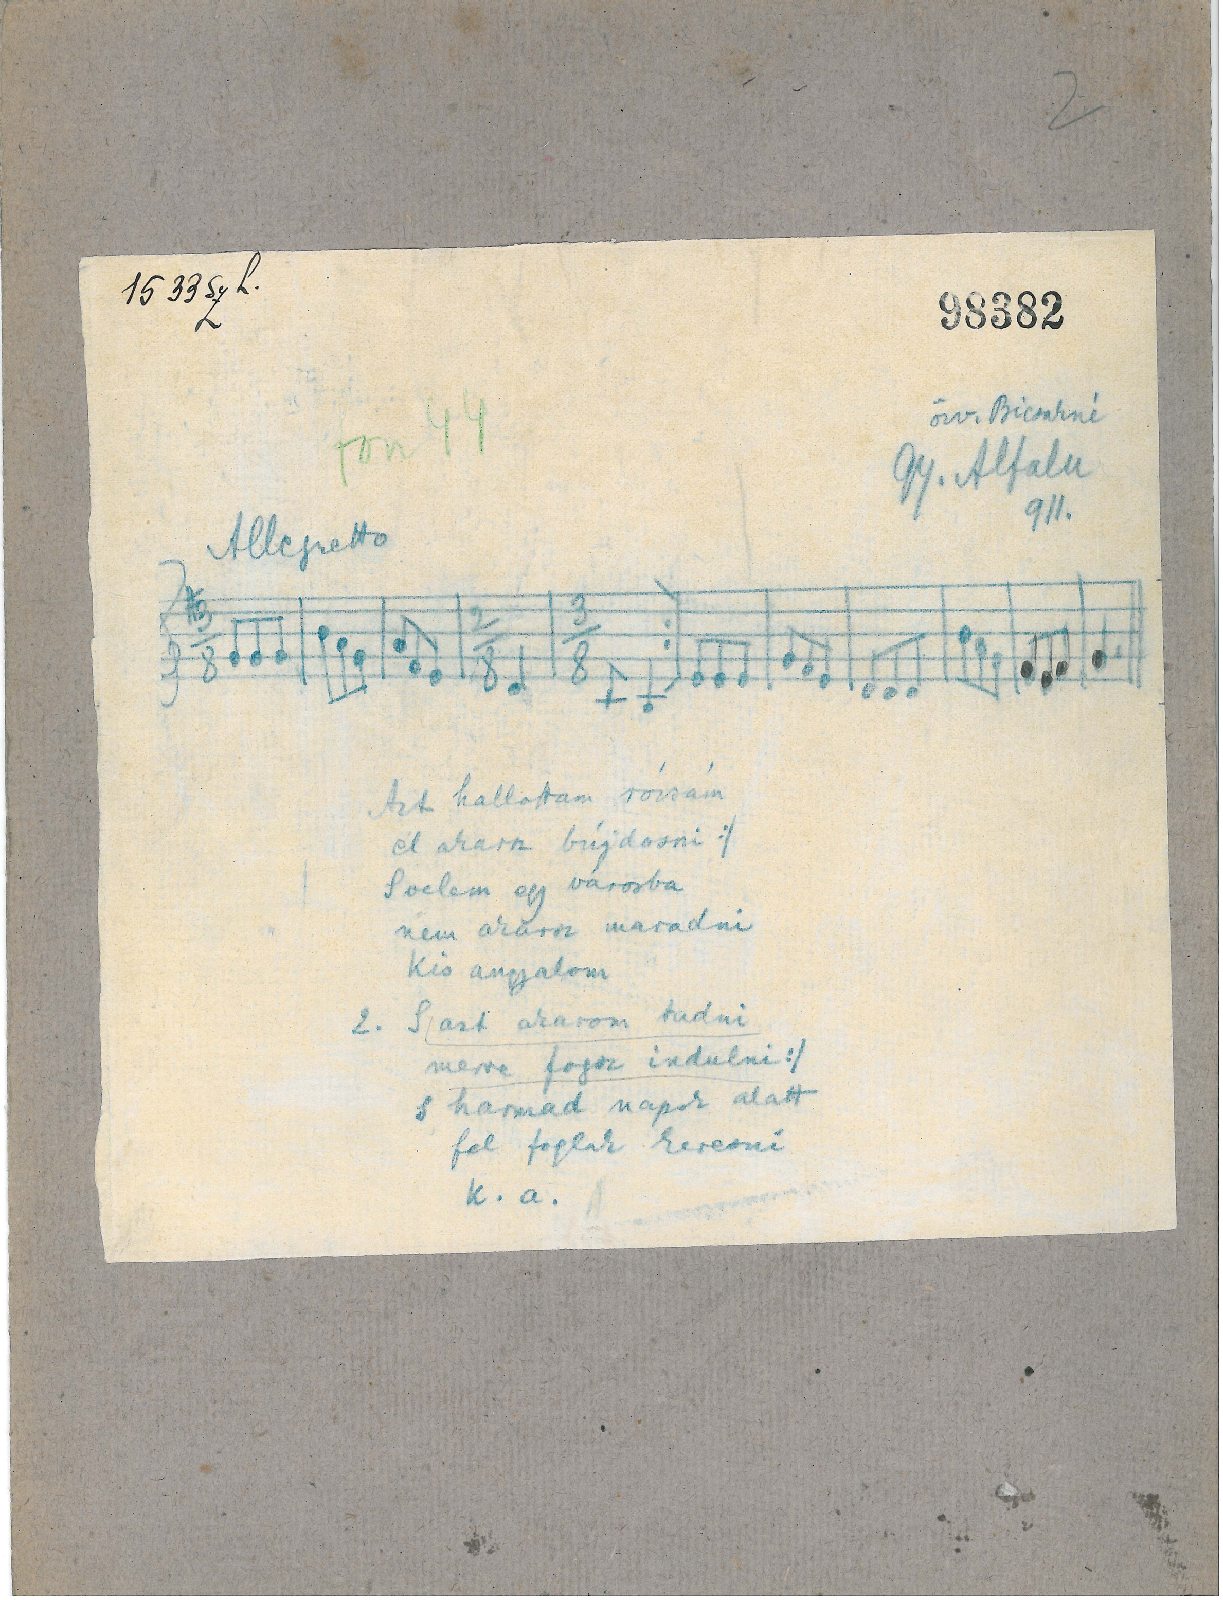 2
15 33 Sz h.
98382
ton 44
özv. Bicsakné
Gy. Alfalu
911.
Allegretto
3
8
2
8
3
8
Azt hallottam rózsám
el akarsz bújdosni :/
S velem egy városba
nem akarsz maradni
Kis angyalom
2. S azt akarom tudni
merre fogsz indulni :/
s harmad napok alatt
fel foglak keresni
k. a.